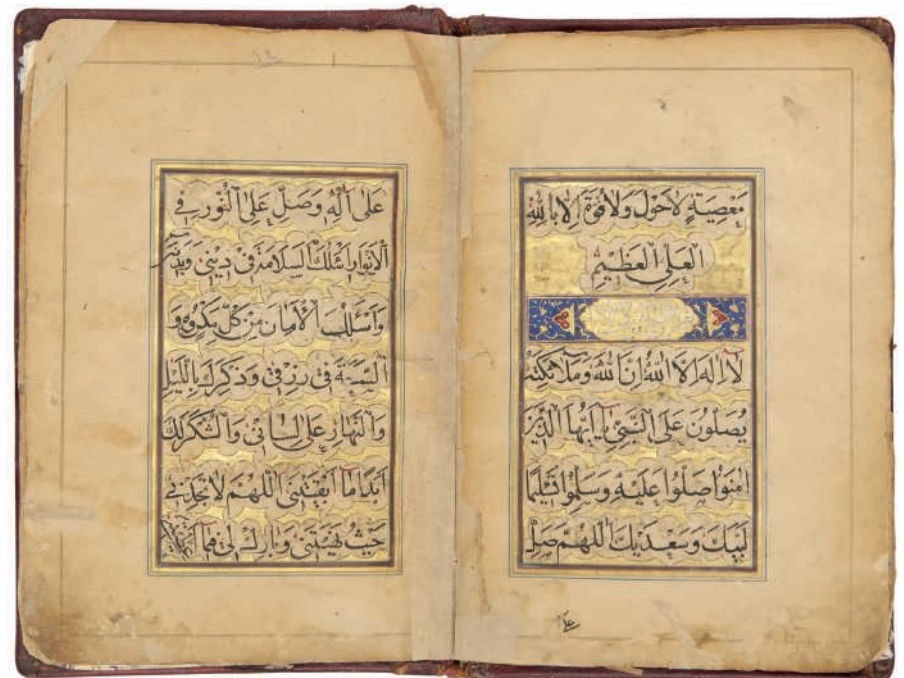 مَعْصِيَةٍ لَاحَوْلَ وَلَاقُوَّةَ اِلَّا بِاللّٰهِ
الْعَلِيِّ الْعَظِيْمِ
لَا اِلٰهَ اِلَّا اللّٰهُ اِنَّ اللّٰهَ وَمَلَآئِكَتَهُ
يُصَلُّونَ عَلَى النَّبِيِّ يَا اَيُّهَا الَّذِينَ
اٰمَنُوا صَلُّوا عَلَيْهِ وَسَلِّمُوا تَسْلِيْمًا
لَبَّيْكَ وَسَعْدَيْكَ اَللّٰهُمَّ صَلِّ
عَلٰى اٰلِهِ وَصَلِّ عَلَى النُّورِ فِي
الْاَنْوَارِ اَسْئَلُكَ السَّلَامَةَ فِيْ دِيْنِيْ
وَاَسْئَلُكَ الْاَمَانَ مِنْ كُلِّ مَكْرُوهٍ وَ
فِيْ رِزْقِيْ وَذِكْرَكَ بِاللَّيْلِ
وَالنَّهَارِ عَلٰى لِسَانِيْ وَالشُّكْرَ لَكَ
اَبَدًا مَا اَبْقَيْتَنِيْ اَللّٰهُمَّ لَا تَجِدُنِيْ
حَيْثُ نَهَيْتَنِيْ وَبَارِكْ لِيْ فِيْمَا